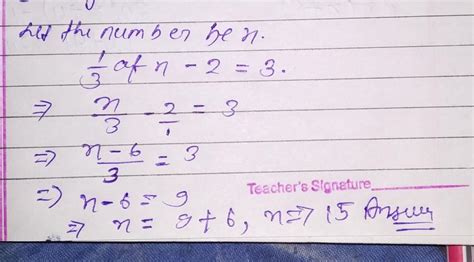 Let the number be n.
1/3 of n - 2 = 3.
⇒ n/3 - 2/1 = 3
⇒ (n-6)/3 = 3
⇒ n-6 = 9
Teacher's Signature
⇒ n = 9+6, n ⇒ 15 Answer